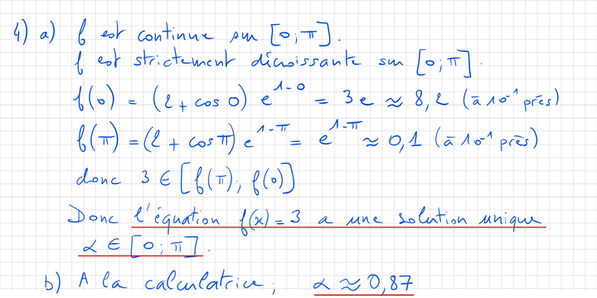 4) a) f est continue sur [0;π].
f est strictement décroissante sur [0;π].
f(0) = (2 + cos 0) e^{1-0} = 3e ≈ 8,2 (à 10^{-1} près)
f(π) = (2 + cos π) e^{1-π} = e^{1-π} ≈ 0,1 (à 10^{-1} près)
donc 3 ∈ [f(π); f(0)]
Donc l'équation f(x) = 3 a une solution unique
α ∈ [0;π].
b) A la calculatrice, α ≈ 0,87